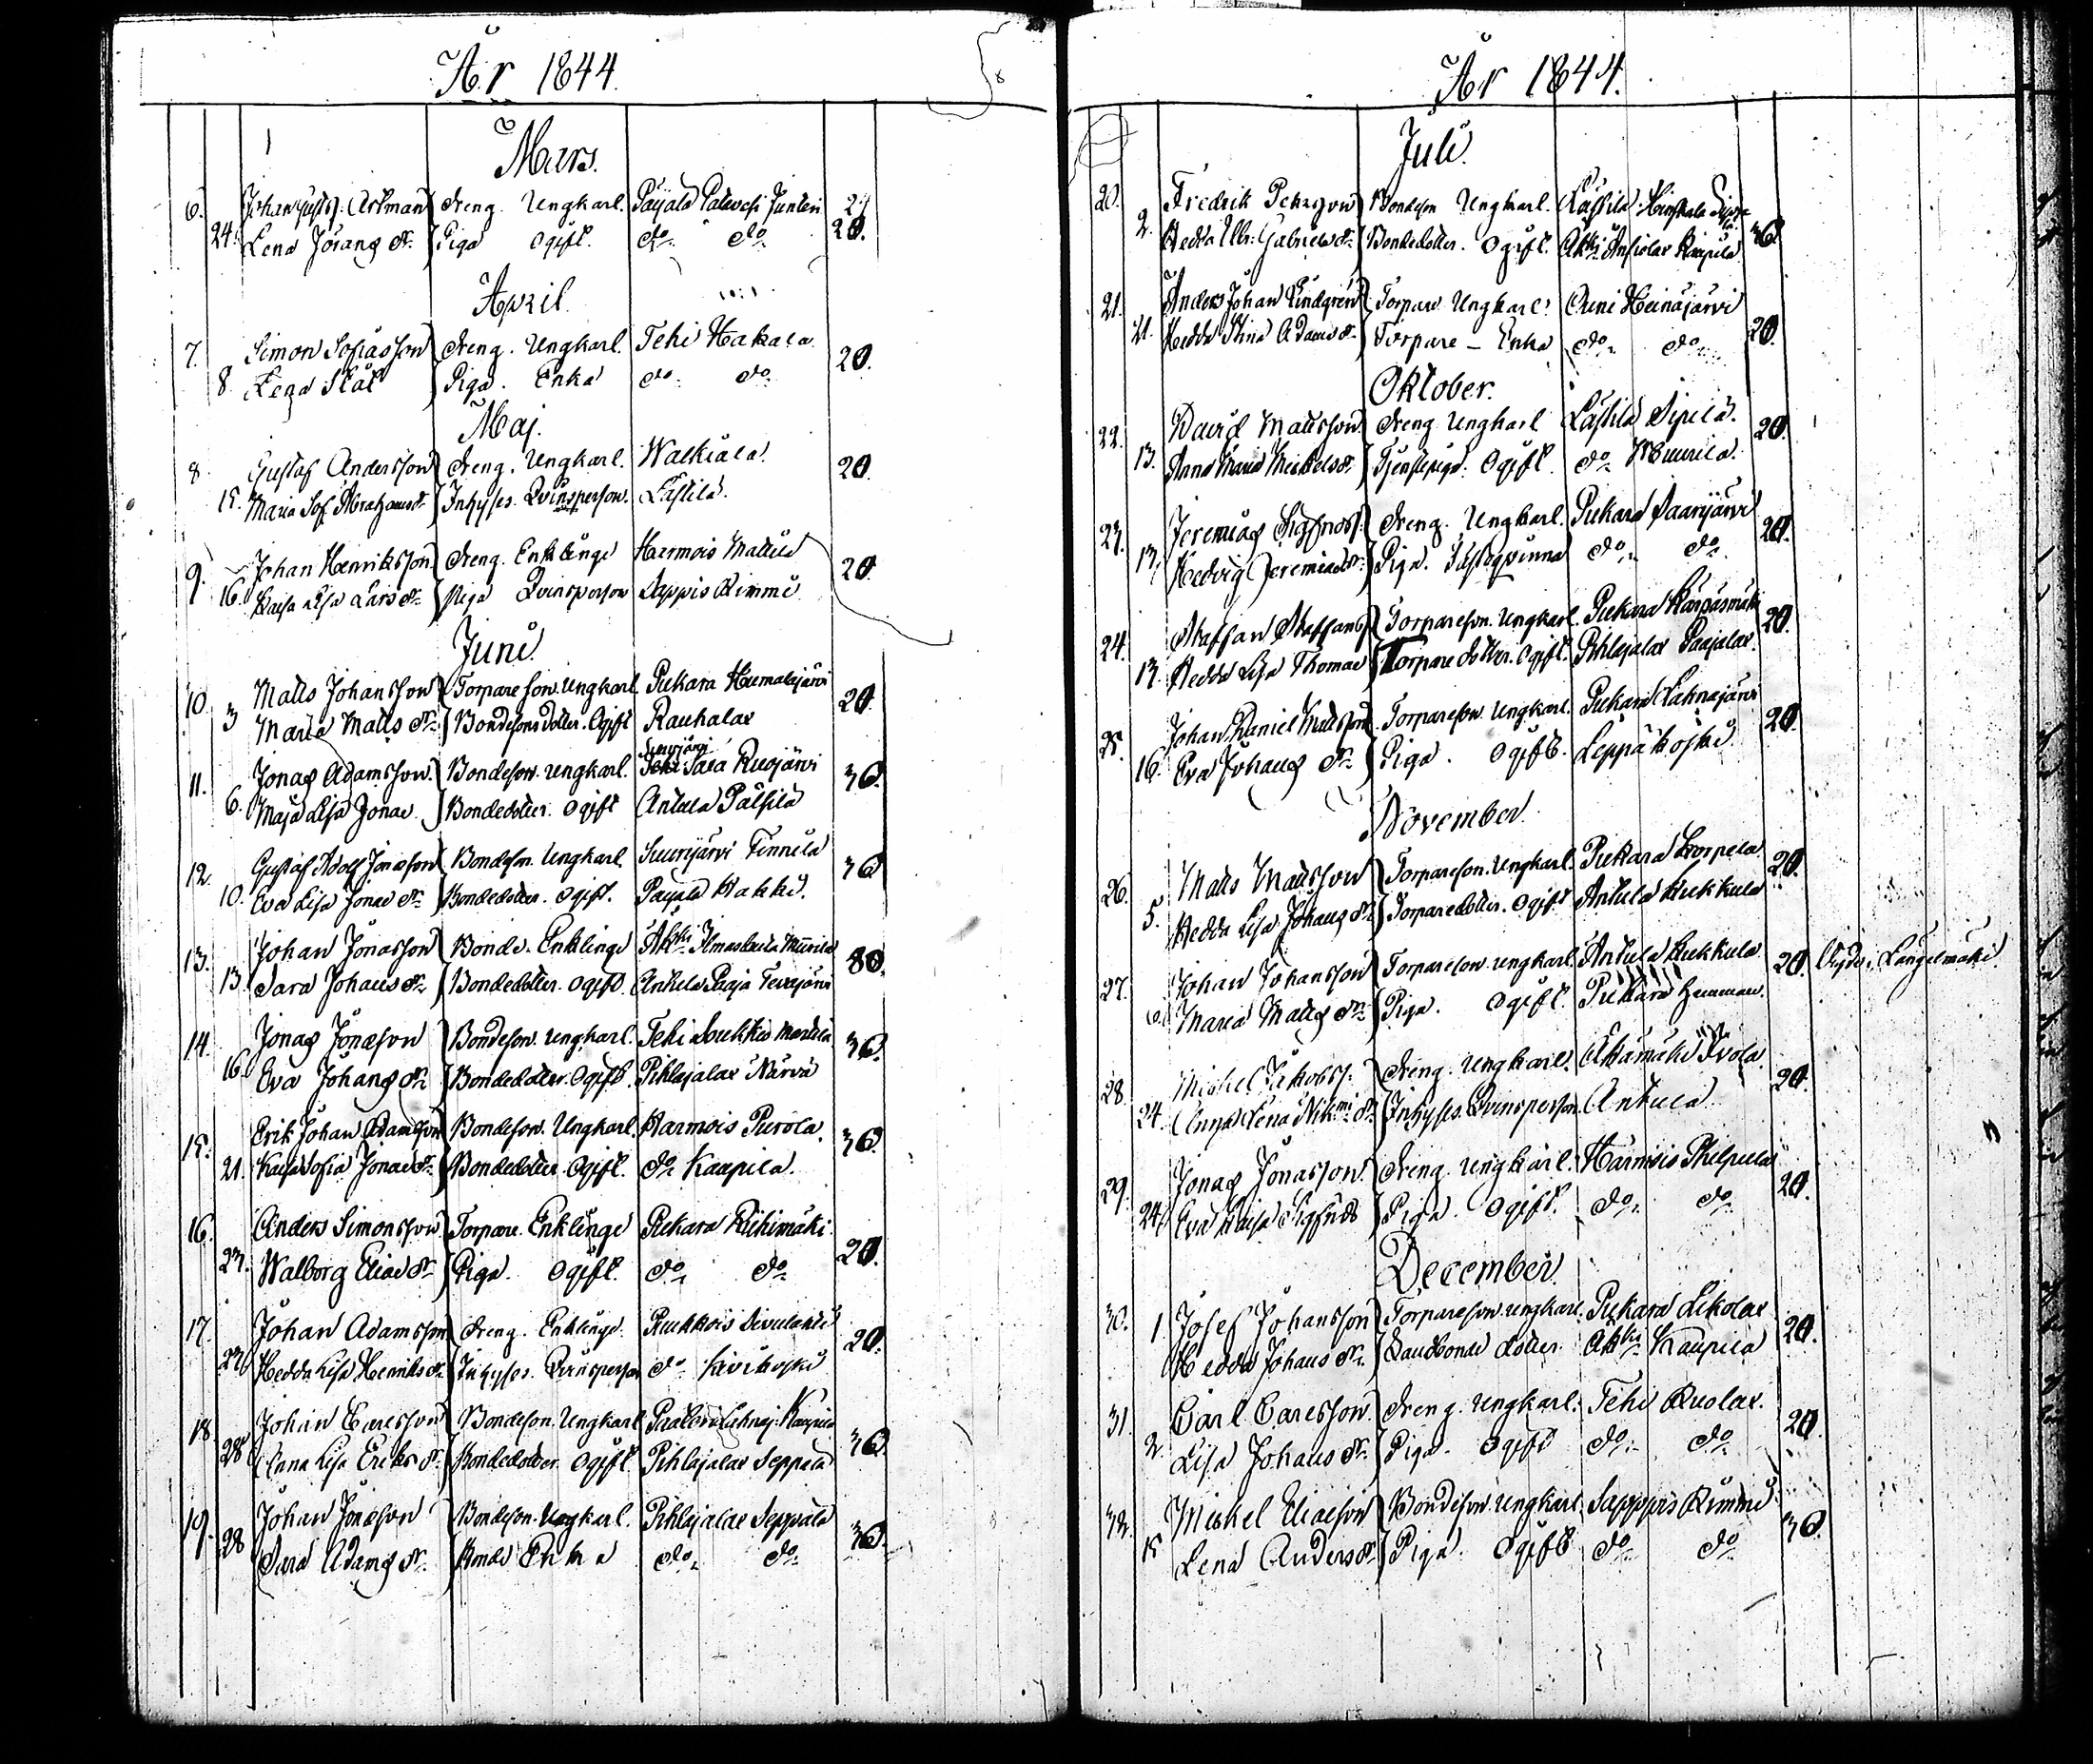 År 1844.
Mars.
6. Johan Gust. Artman Dreng Ungkarl. Päijälä Juntin
24. Lena Johans dr. Piga Ogift. do do 20.
April
7. Simon Sofiasson Dreng. Ungkarl. Tehi Hakala 20.
8. Lena Stål Piga. Enka do do
Maj.
8. Gustaf Andersson Dreng. Ungkarl. Walkiala. 20.
15. Maria Sof. Abrahams dr Inhyses. Qvinsperson. Lästilä.
9. Johan Henriksson Dreng. Enklinge Harmois Mattila 20.
16. Kaisa Lisa Lars dr. Piga Qvinsperson Sappis Rimmi
Juni
10. Matts Johansson Torpareson. Ungkarl. Pukara Humalajärvi 20.
3 Maria Matts dr. Bondesons dotter. Ogift Rauhalax
Suurjärvi
11. Jonas Adamsson. Bondeson. Ungkarl. Ruojärvi 36.
6. Maja Lisa Jonae. Bondedotter. Ogift Antula Pälsilä
12. Gustaf Adolf Jonasson Bondeson. Ungkarl. Suurijärvi Tinnilä 36
10. Eva Lisa Jonae dr. Bondedotter. Ogift. Päijälä Kakki.
13. Johan Jonasson Bonde. Enklinge 80.
13. Sara Johans dr. Bondedotter. Ogift. Paaja
14. Jonas Jonasson Bondeson. Ungkarl. Tehi Mattila 36.
16. Eva Johans dr. Bondedotter. Ogift. Pihlajalax Närvä
15. Erik Johan Adamsson Bondeson. Ungkarl. Harmois Purola. 36.
21. Kaisa Sofia Jonae dr. Bondedotter. Ogift. do Kaupila.
16. Anders Simonsson Torpare. Enklinge Pukara Riihimäki 20.
23. Walborg Eliae dr. Piga. Ogift. do do
17. Johan Adamsson Dreng. Enklinge. Ruokkois 20.
23. Hedda Lisa Henriks dr. Inhyses. Qvinsperson do Kivikoski
18. Johan Carlsson Bondeson. Ungkarl 36.
28 Anna Lisa Eriks dr. Bondedotter Ogift Pihlajalax Seppälä
19. Johan Jonasson Bondeson. Ungkarl. Pihlajalax Seppälä 36.
28 Sara Adams dr. Bonde Enka do do
År 1844.
Juli.
20. Fredrik Petersson Bondeson Ungkarl. Lästilä 36
2. Hedda Ulr. Gabriels dr. Bondedotter. Ogift.
21. Anders Johan Lindgren Torpare Ungkarl. Arvi Heinäjärvi
21. Hedda Stina Adams dr. Torpare - Enka do do 20.
Oktober.
22. David Mattsson Dreng Ungkarl Lästilä Sipilä. 20.
13. Anna Maria Mickels dr. Tjenstepiga. Ogift. do Muurila.
23. Jeremias Sigfriss. Dreng. Ungkarl. Pukara Saarijärvi 20.
13. Hedvig Jeremiae dr. Piga. do do
24. Staffan Staffans. Torpareson. Ungkarl. Pukara Kärpäsmäki 20.
13. Hedda Lisa Thomae Torpare dotter. Ogift. Pihlajalax Paajalax.
25. Johan Daniel Mattsson Torpareson. Ungkarl. Pukara Lahnajärvi 20.
16. Eva Johans dr. Piga. Ogift. Leppäkoski
November.
26. Matts Mattsson Torpareson. Ungkarl. Pukara Korpela 20.
5. Hedda Lisa Johans dr. Torparedotter. Ogift Antula Kukkula
27. Johan Johansson Torpareson. Ungkarl. Antula Kukkula 20. Längelmäki
6. Maria Matts dr. Piga. Ogift. Pukara
28. Michel Jakobss. Dreng. Ungkarl. Arola 20.
24. Anna Lena dr. Inhyses. Qvinsperson. Antula
29. Jonas Jonasson. Dreng. Ungkarl. Harmois 20.
24. Eva Kaisa Sigfrids Piga. Ogift. do do
December.
30. 1. Josef Johansson Torpareson. Ungkarl. Pukara 20.
Hedda Johans dr. Landbonde dotter. Kaupila
31. Carl Carlsson. Dreng. Ungkarl. Tehi Ruolax. 20.
2. Lisa Johans dr. Piga. Ogift do do
32. Mickel Eliasson Bondeson Ungkarl. Sappis Rimmi 36.
15 Lena Anders dr. Piga. Ogift do do